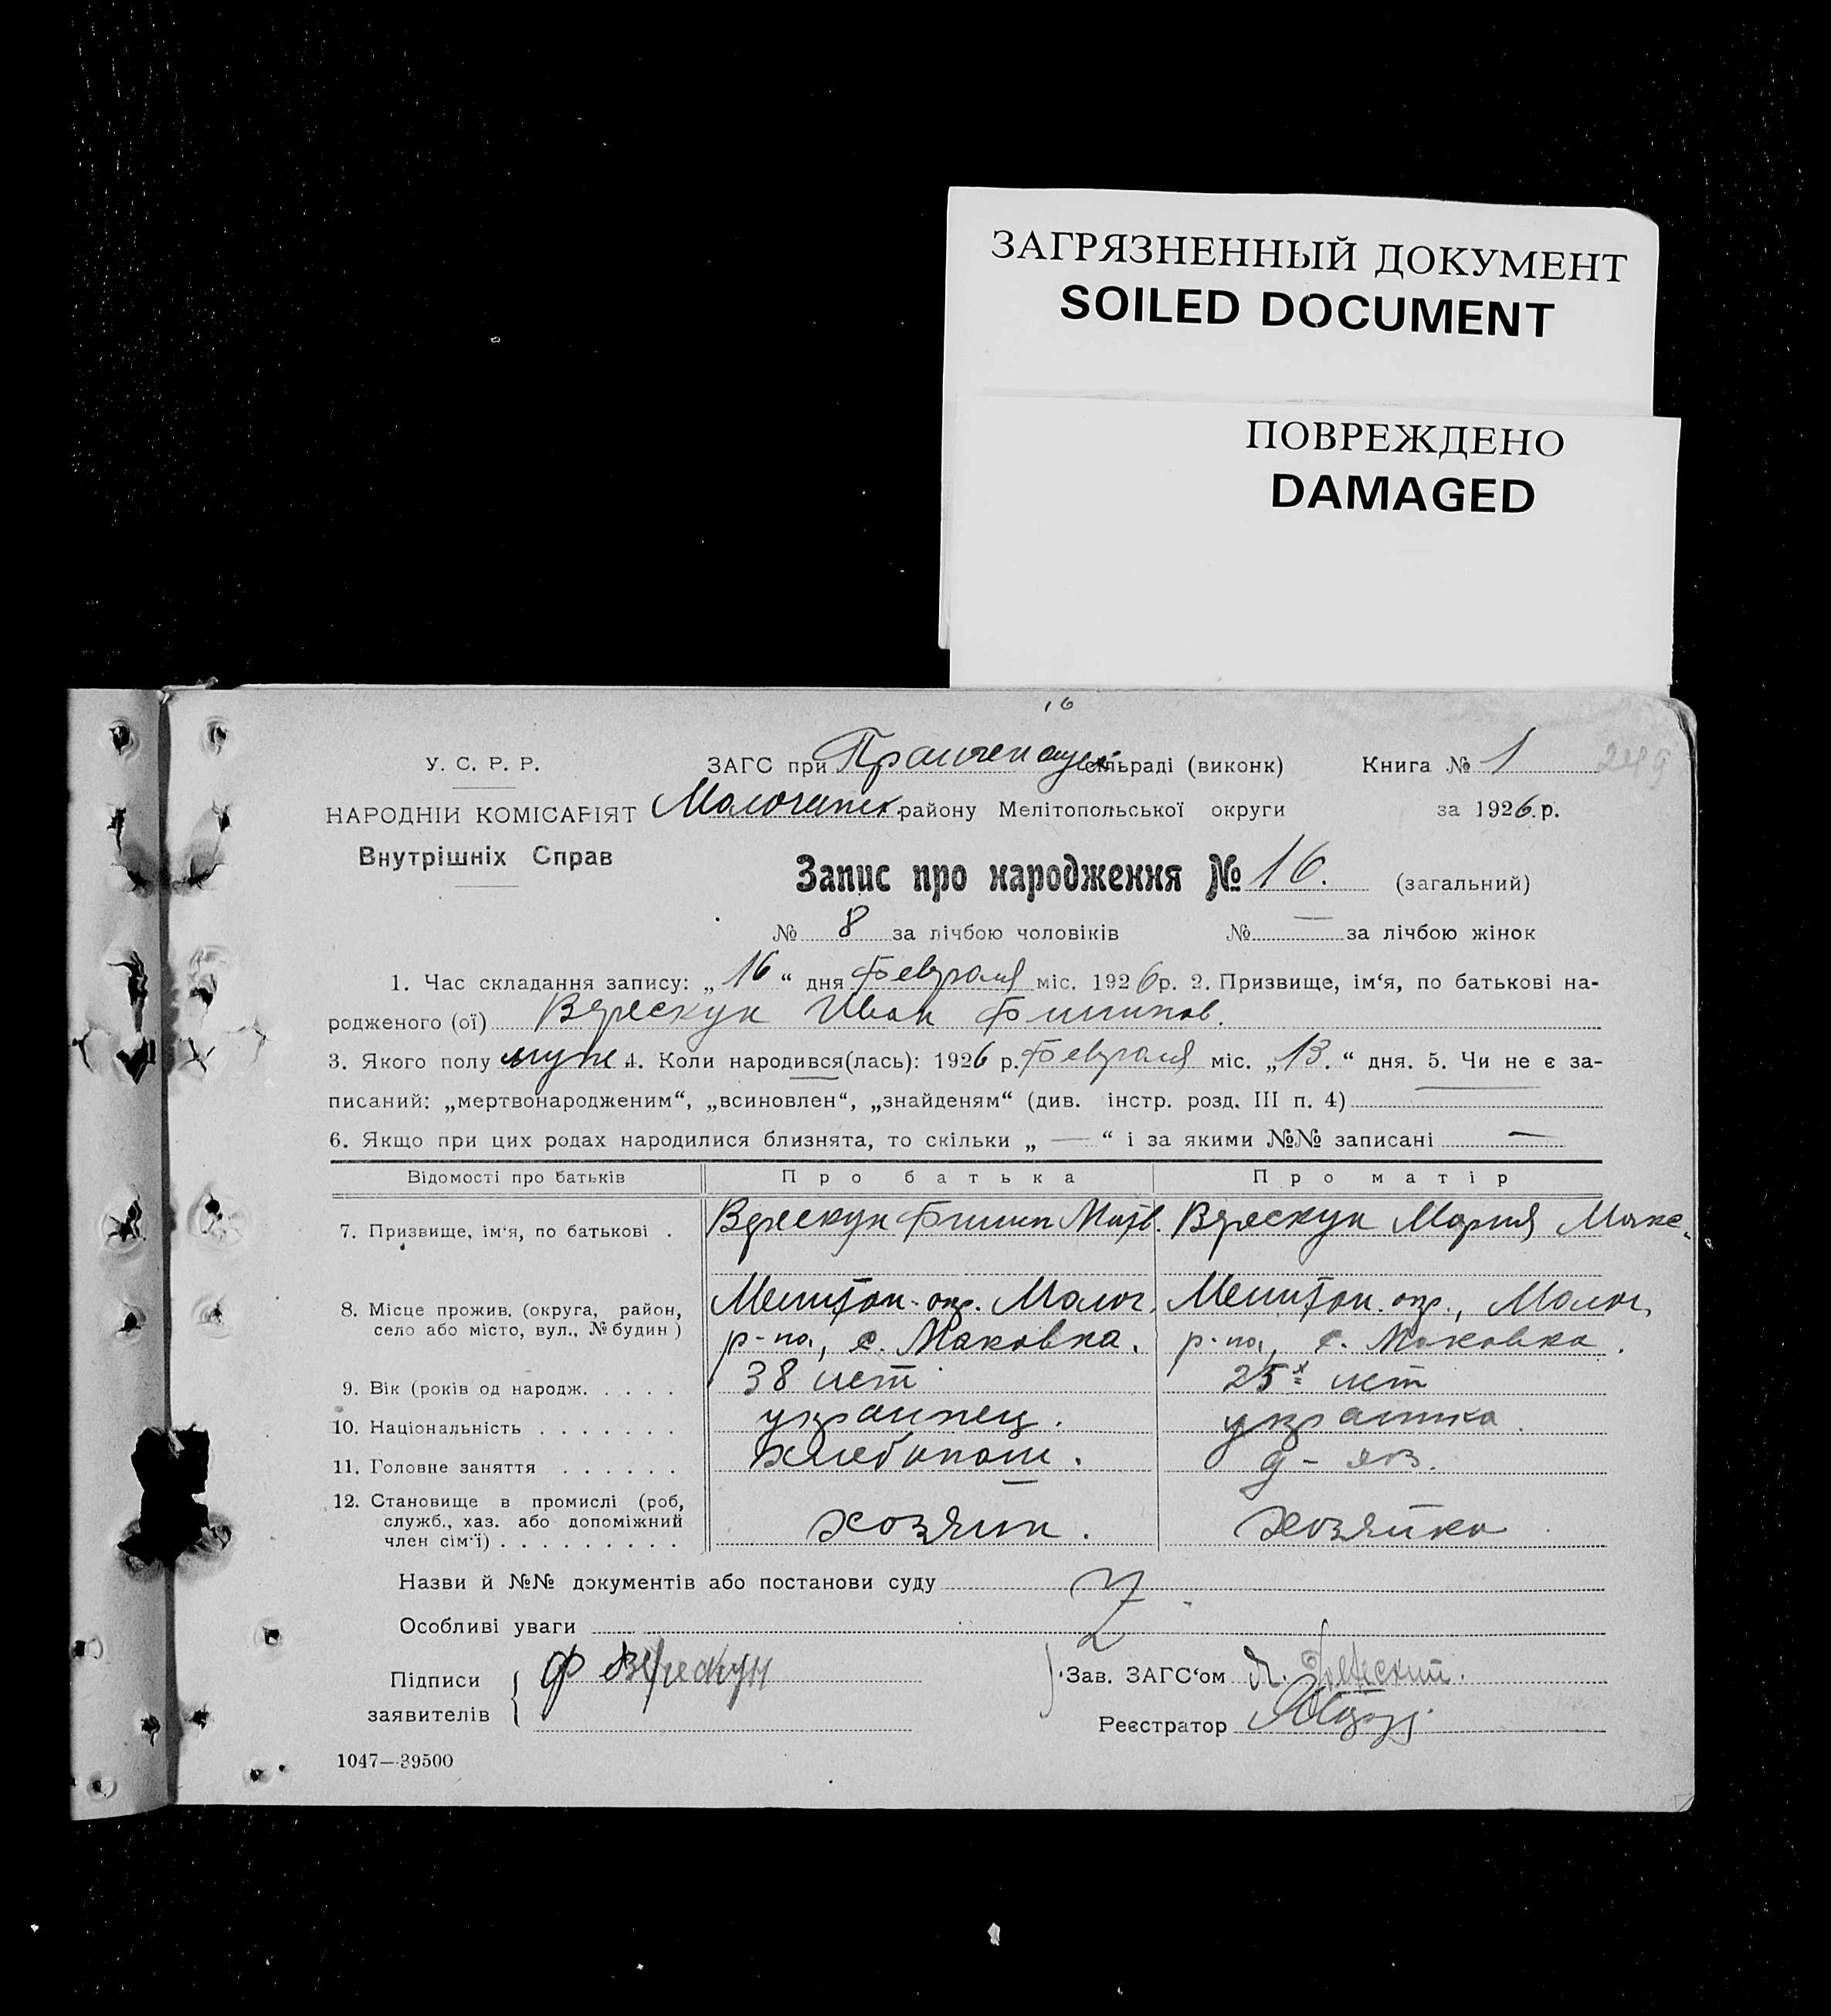 ЗАГРЯЗНЕННЫЙ ДОКУМЕНТ
SOILED DOCUMENT
ПОВРЕЖДЕНО
DAMAGED
16
У. С. Р. Р. ЗАГС при сільраді (виконк) Книга № 1 249
НАРОДНІЙ КОМІСАРІЯТ Молочанск. району Мелітопольської округи за 1926. р.
Внутрішніх Справ
Запис про народження № 16. (загальний)
№ 8 за лічбою чоловіків № — за лічбою жінок
1. Час складання запису: „16“ дня Февраля міс. 1926 р. 2. Призвище, ім‘я, по батькові на-
родженого (ої) Верескун Иван Филипов.
3. Якого полу муж 4. Коли народився(лась): 1926 р. Февраля міс. „13.“ дня. 5. Чи не є за-
писаний: „мертвонародженим“, „всиновлен“, „знайденям“ (див. інстр. розд. III п. 4) —
6. Якщо при цих родах народилися близнята, то скільки „ — “ і за якими №№ записані —
Відомості про батьків Про батька Про матір
7. Призвище, ім‘я, по батькові . Верескун Филип Матв. Верескун Мария Макс.
8. Місце прожив. (округа, район, Мелитоп. окр. Молоч. Мелитоп. окр., Молоч.
село або місто, вул., № будин ) р-на, с. Маковка. р-на, с. Маковка.
9. Вік (років од народж. . . . . 38 лет 25 лет
10. Національність . . . . . . . украинец. украинка.
11. Головне заняття . . . . . . хлебопаш. д-хоз.
12. Становище в промислі (роб,
служб., хаз. або допоміжний хозяин. хозяйка
член сім‘ї) . . . . . . . . .
Назви й №№ документів або постанови суду
Особливі уваги
Підписи Ф Верескун Зав. ЗАГС‘ом
заявителів Реєстратор
1047—39500